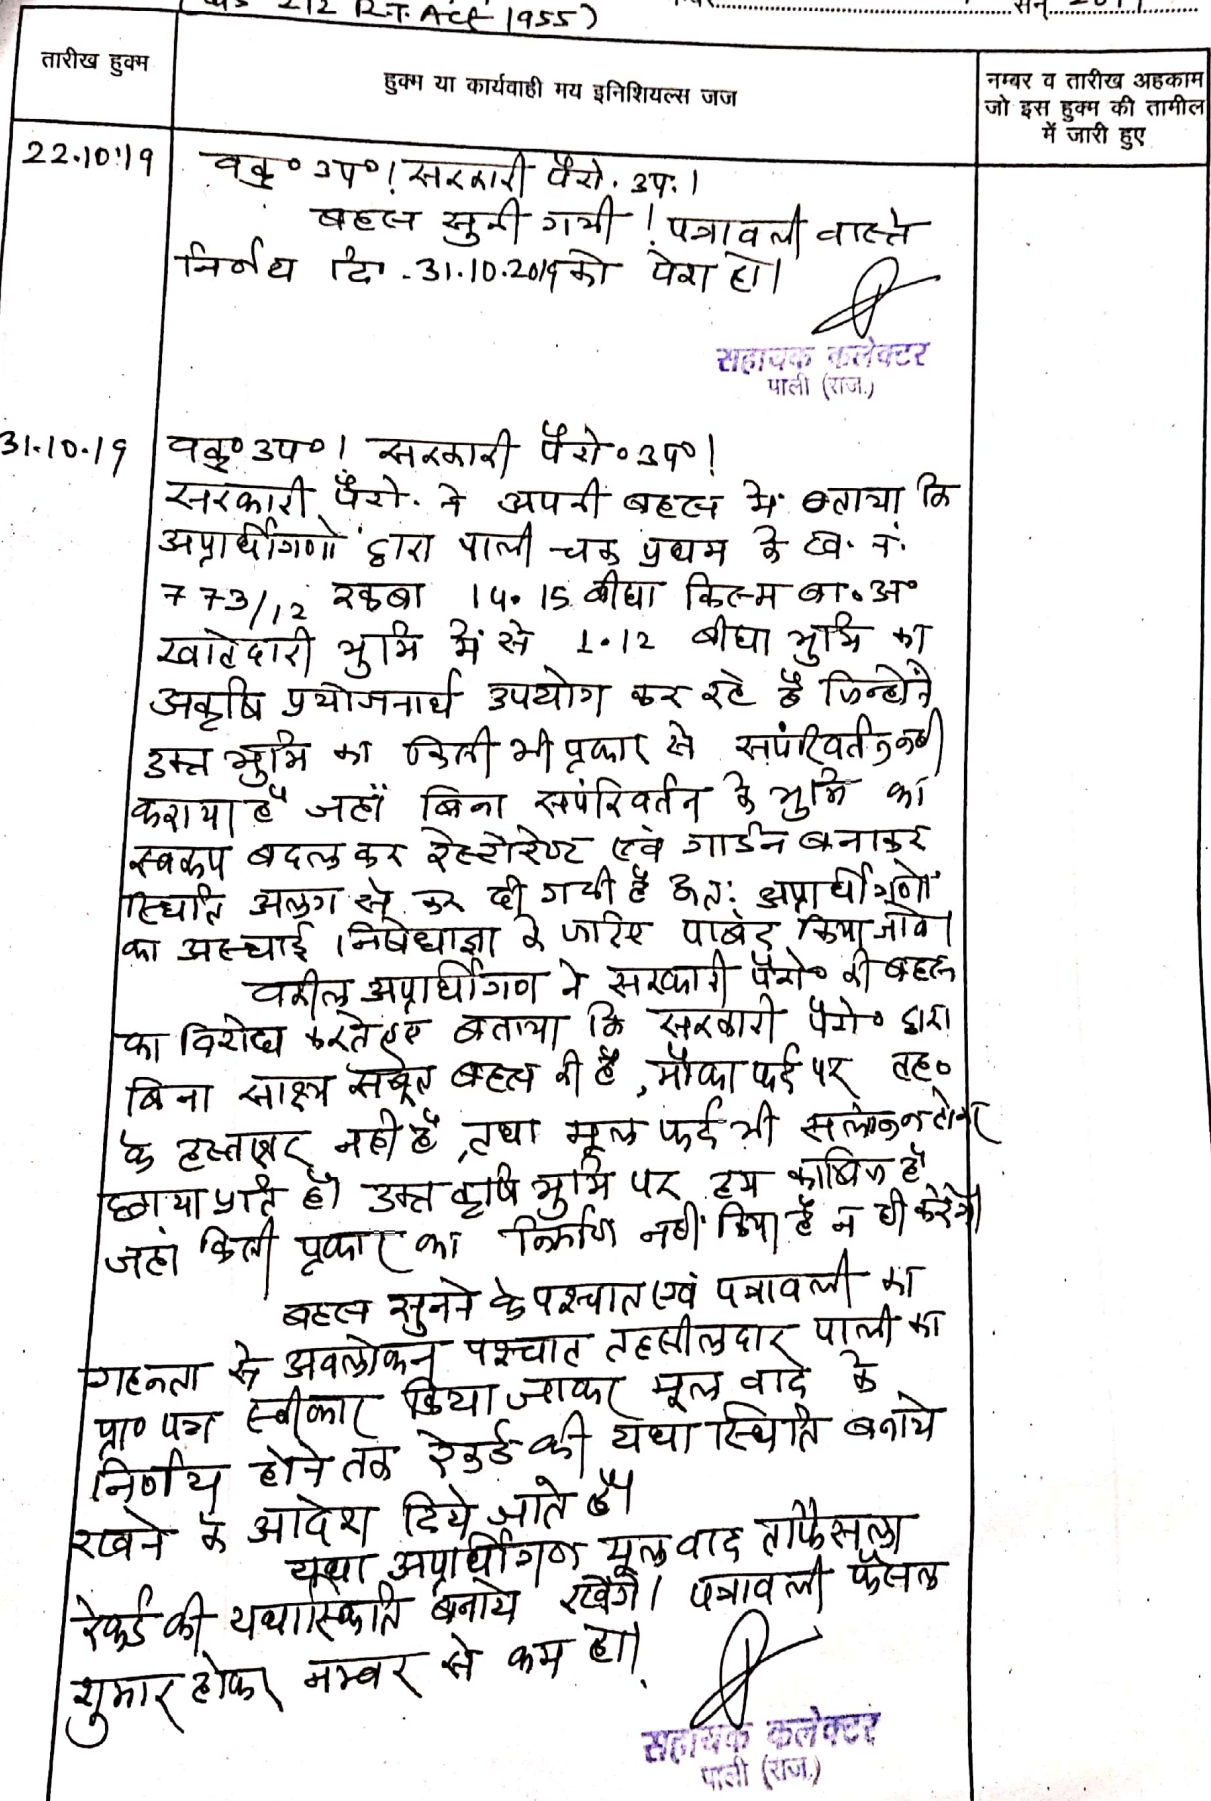 212 R.T. Act 1955)
सन् 2019
तारीख हुक्म
हुक्म या कार्यवाही मय इनिशियल्स जज
नम्बर व तारीख अहकाम
जो इस हुक्म की तामील
में जारी हुए
22.10.19
वकु० उप०। सरकारी पैरो. उप.।
बहस सुनी गयी। पत्रावली वास्ते
निर्णय दि. 31.10.2019 को पेश हो।
सहायक कलेक्टर
पाली (राज.)
31.10.19
वकु० उप०। सरकारी पैरो० उप०।
सरकारी पैरो. ने अपनी बहस में बताया कि
अप्रार्थीगणों द्वारा पाली चक प्रथम के ख. नं.
773/12 रकबा 14.15 बीघा किस्म बा.अ०
खातेदारी भुमि में से 1.12 बीघा भुमि का
अकृषि प्रयोजनार्थ उपयोग कर रहे है जिन्होने
उक्त भुमि का किसी भी प्रकार से सपंरिवर्तन नही
कराया है जहाँ बिना सपंरिवर्तन के भुमि का
स्वरूप बदल कर रेस्टोरेण्ट एवं गार्डन बनाकर
स्थिति अलग से कर दी गयी है अतः अप्रार्थीगणों
को अस्थाई निषेधाज्ञा के जरिए पाबंद किया जावे।
वकील अप्रार्थीगण ने सरकारी पैरो० की बहस
का विरोध करते हुए बताया कि सरकारी पैरो० द्वारा
बिना साक्ष्य सबूत बहस की है, मौका फर्द पर तह०
के हस्ताक्षर नही है, तथा मूल फर्द भी सलंग्न न होकर
छाया प्रति है। उक्त कृषि भुमि पर हम काबिज है
जहां किसी प्रकार का निर्माण नहीं किया है न ही करेंगे।
बहस सुनने के पश्चात एवं पत्रावली का
गहनता से अवलोकन पश्चात तहसीलदार पाली का
प्रा० पत्र स्वीकार किया जाकर मूल वाद के
निर्णय होने तक रेकर्ड की यथा स्थिति बनाये
रखने के आदेश दिये जाते है।
अप्रार्थीगण मूल वाद ताफैसला
रेकर्ड की यथास्थिति बनाये रखेंगे। पत्रावली फैसल
शुमार होकर नम्बर से कम हो।
सहायक कलेक्टर
पाली (राज.)